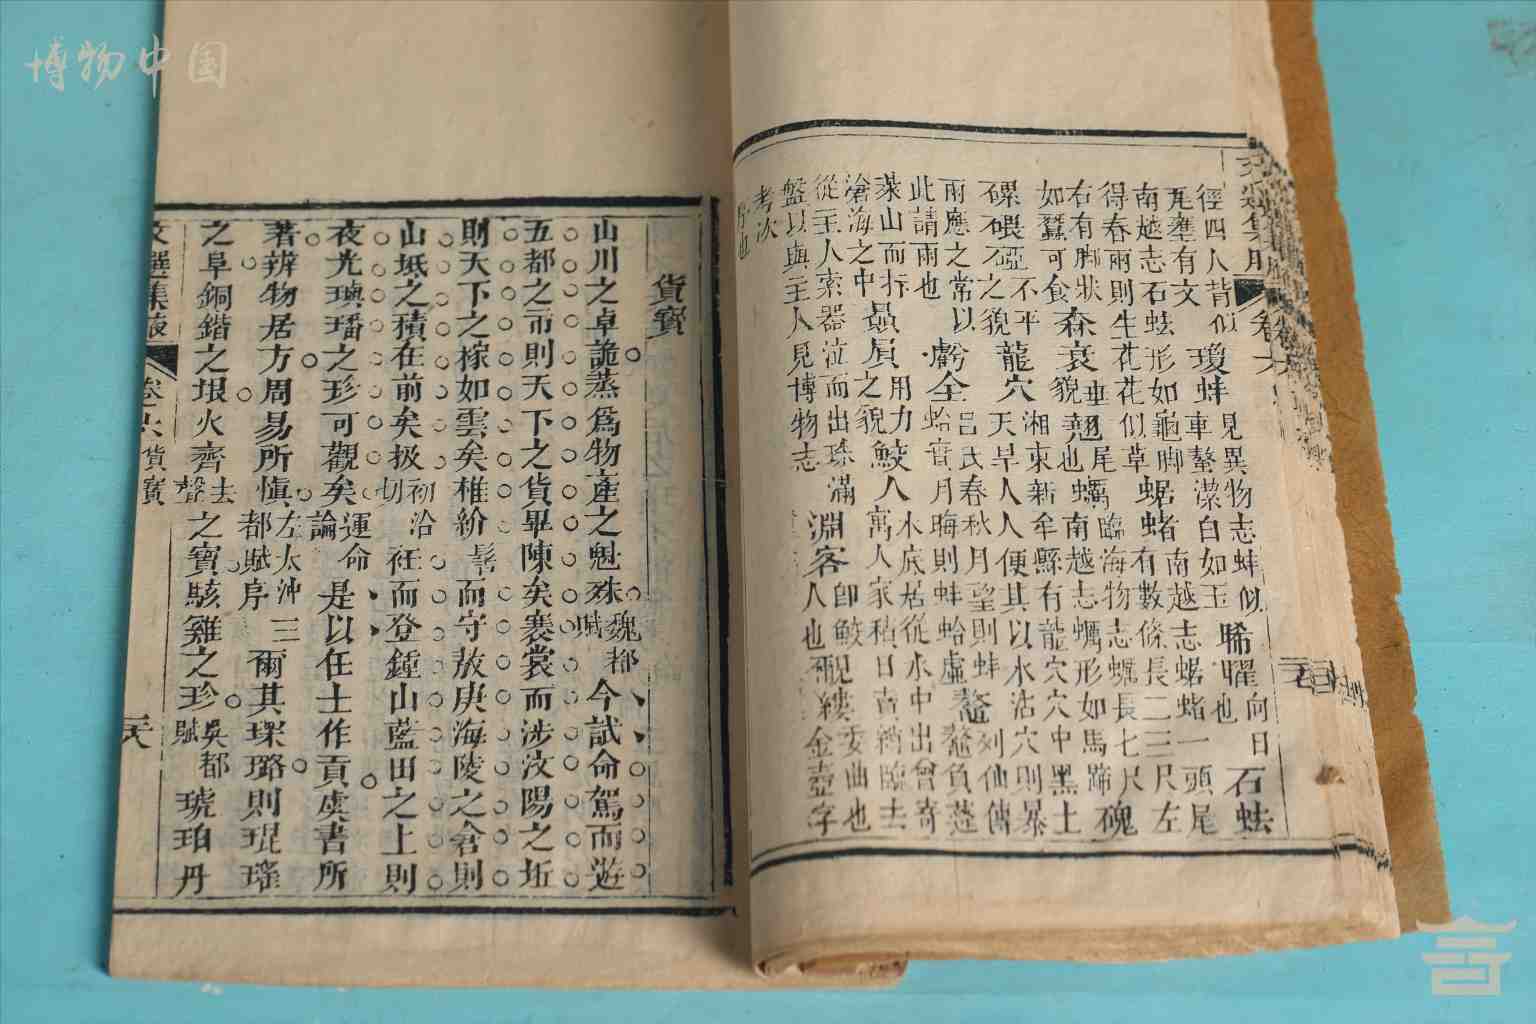 卷六
徑四尺背似瓦壟有文瓊蚌見異物志蚌似車螯潔白如玉晞曜向日也石蚨
南越志石蚨形如龜脚得春雨則生花花似草蜛蠩南越志蜛蠩一頭尾有數條長二三尺左
右有脚狀如蠶可食森衰垂貌翹尾也蠣臨海物志蠣長七尺南越志蠣形如馬蹄磈
龍穴湘東新牟縣有龍穴穴中黑土天旱人人便其以水沾穴則暴
雨應之常以此請雨也虧全呂氏春秋月望則蚌蛤實月晦則蚌蛤虛鼇列仙傳鼇負蓬
萊山而抃滄海之中贔屓用力之貌鮫人水底居從水中出曾寄寓人家積日賣綃臨去
從主人索器泣而出珠滿盤以與主人見博物志淵客即鮫人也覼縷委曲也金壺字
考次序也
貨寶
山川之卓詭蒸爲物產之魁殊魏都賦今試命駕而遊
五都之市則天下之貨畢陳矣褰裳而涉汶陽之坵
則天下之稼如雲矣椎紒髻而守敖庾海陵之倉則
山坻之積在前矣扱初洽切衽而登鍾山藍田之上則
夜光璵璠之珍可觀矣運命論是以任土作貢虞書所
著辨物居方周易所慎左太冲三都賦序爾其琛璐則琨瑤
之阜銅鍇之垠火齊去聲之寶駭雞之珍吳都賦琥珀丹
文選集腋 卷六貨寶
博物中国